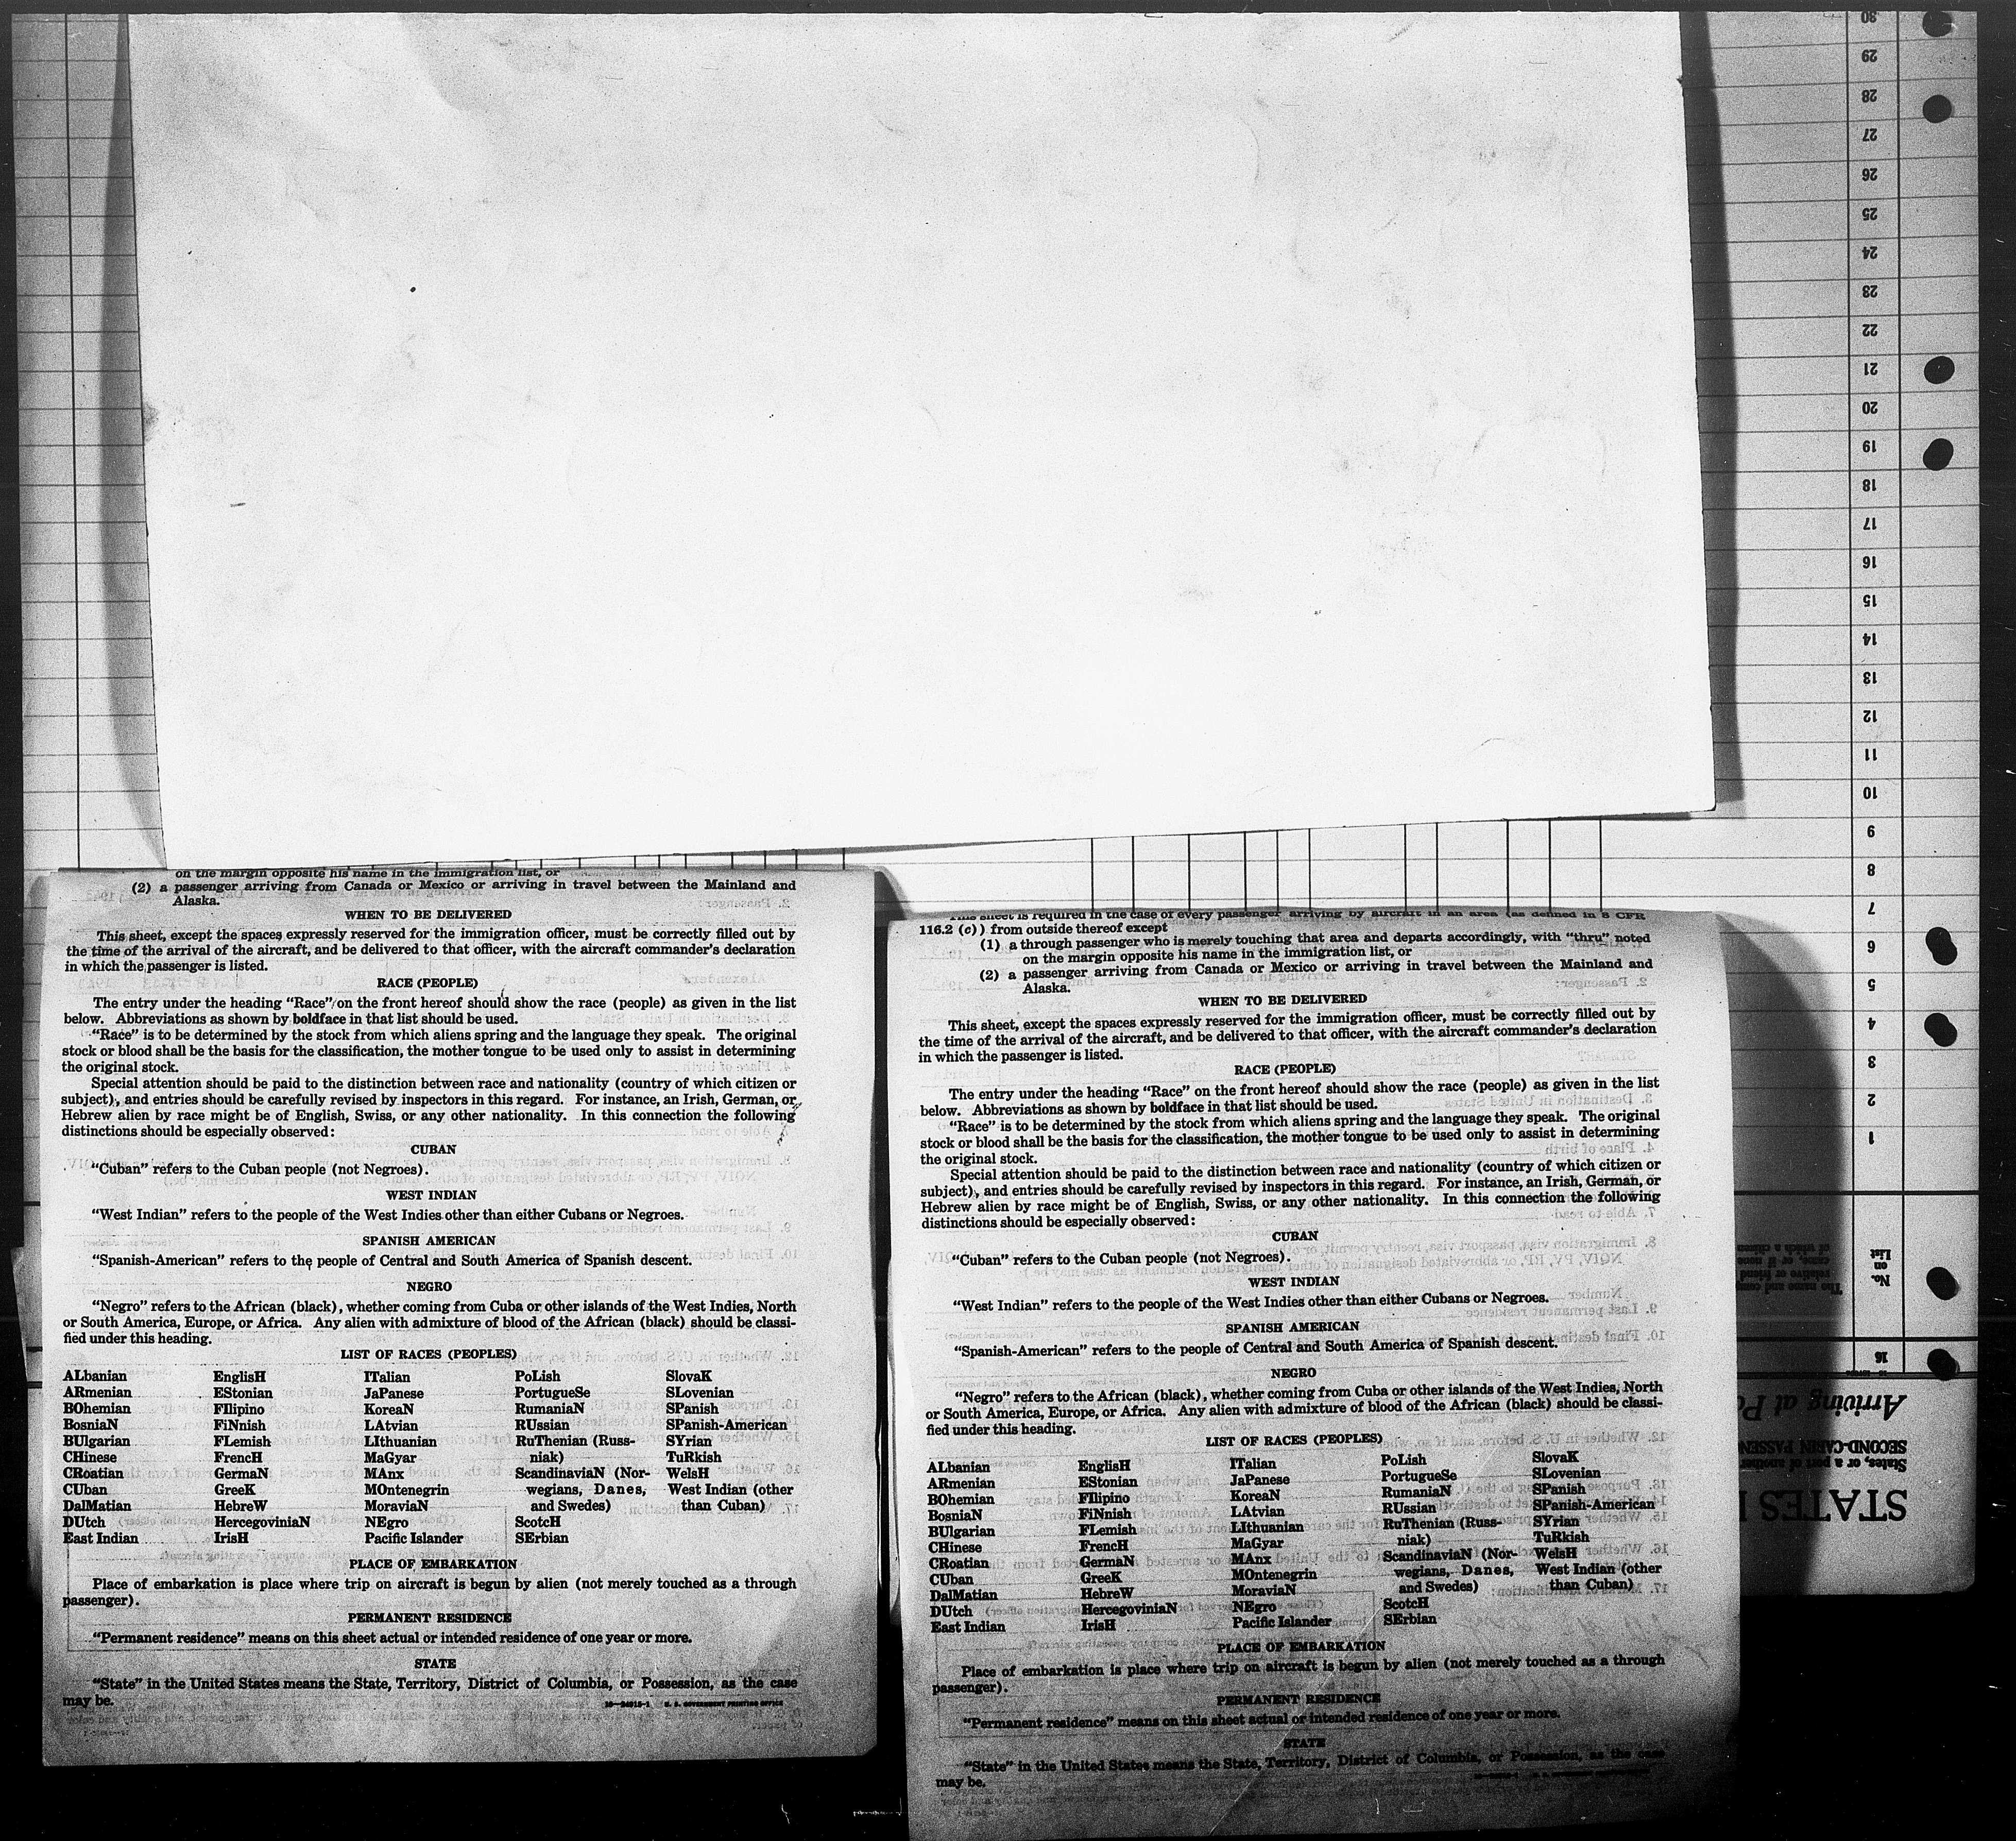 on the margin opposite his name in the immigration list, or
(2) a passenger arriving from Canada or Mexico or arriving in travel between the Mainland and
Alaska.
WHEN TO BE DELIVERED
This sheet, except the spaces expressly reserved for the immigration officer, must be correctly filled out by
the time of the arrival of the aircraft, and be delivered to that officer, with the aircraft commander's declaration
in which the passenger is listed.
RACE (PEOPLE)
The entry under the heading "Race" on the front hereof should show the race (people) as given in the list
below. Abbreviations as shown by boldface in that list should be used.
"Race" is to be determined by the stock from which aliens spring and the language they speak. The original
stock or blood shall be the basis for the classification, the mother tongue to be used only to assist in determining
the original stock.
Special attention should be paid to the distinction between race and nationality (country of which citizen or
subject), and entries should be carefully revised by inspectors in this regard. For instance, an Irish, German, or
Hebrew alien by race might be of English, Swiss, or any other nationality. In this connection the following
distinctions should be especially observed:
CUBAN
"Cuban" refers to the Cuban people (not Negroes).
WEST INDIAN
"West Indian" refers to the people of the West Indies other than either Cubans or Negroes.
SPANISH AMERICAN
"Spanish-American" refers to the people of Central and South America of Spanish descent.
NEGRO
"Negro" refers to the African (black), whether coming from Cuba or other islands of the West Indies, North
or South America, Europe, or Africa. Any alien with admixture of blood of the African (black) should be classi-
fied under this heading.
LIST OF RACES (PEOPLES)
ALbanian
ARmenian
BOhemian
BosniaN
BUlgarian
CHinese
CRoatian
CUban
DalMatian
DUtch
East Indian
EnglisH
EStonian
FIlipino
FiNnish
FLemish
FrencH
GermaN
GreeK
HebreW
HercegoviniaN
IrisH
ITalian
JaPanese
KoreaN
LAtvian
LIthuanian
MaGyar
MAnx
MOntenegrin
MoraviaN
NEgro
Pacific Islander
PoLish
PortugueSe
RumaniaN
RUssian
RuThenian (Russ-
niak)
ScandinaviaN (Nor-
wegians, Danes,
and Swedes)
ScotcH
SErbian
SlovaK
SLovenian
SPanish
SPanish-American
SYrian
TuRkish
WelsH
West Indian (other
than Cuban)
PLACE OF EMBARKATION
Place of embarkation is place where trip on aircraft is begun by alien (not merely touched as a through
passenger).
PERMANENT RESIDENCE
"Permanent residence" means on this sheet actual or intended residence of one year or more.
STATE
"State" in the United States means the State, Territory, District of Columbia, or Possession, as the case
may be.
U. S. GOVERNMENT PRINTING OFFICE
This sheet is required in the case of every passenger arriving by aircraft in an area (as defined in 8 CFR
116.2 (c)) from outside thereof except
(1) a through passenger who is merely touching that area and departs accordingly, with "thru" noted
on the margin opposite his name in the immigration list, or
(2) a passenger arriving from Canada or Mexico or arriving in travel between the Mainland and
Alaska.
WHEN TO BE DELIVERED
This sheet, except the spaces expressly reserved for the immigration officer, must be correctly filled out by
the time of the arrival of the aircraft, and be delivered to that officer, with the aircraft commander's declaration
in which the passenger is listed.
RACE (PEOPLE)
The entry under the heading "Race" on the front hereof should show the race (people) as given in the list
below. Abbreviations as shown by boldface in that list should be used.
"Race" is to be determined by the stock from which aliens spring and the language they speak. The original
stock or blood shall be the basis for the classification, the mother tongue to be used only to assist in determining
the original stock.
Special attention should be paid to the distinction between race and nationality (country of which citizen or
subject), and entries should be carefully revised by inspectors in this regard. For instance, an Irish, German, or
Hebrew alien by race might be of English, Swiss, or any other nationality. In this connection the following
distinctions should be especially observed:
CUBAN
"Cuban" refers to the Cuban people (not Negroes).
WEST INDIAN
"West Indian" refers to the people of the West Indies other than either Cubans or Negroes.
SPANISH AMERICAN
"Spanish-American" refers to the people of Central and South America of Spanish descent.
NEGRO
"Negro" refers to the African (black), whether coming from Cuba or other islands of the West Indies, North
or South America, Europe, or Africa. Any alien with admixture of blood of the African (black) should be classi-
fied under this heading.
LIST OF RACES (PEOPLES)
ALbanian
ARmenian
BOhemian
BosniaN
BUlgarian
CHinese
CRoatian
CUban
DalMatian
DUtch
East Indian
EnglisH
EStonian
FIlipino
FiNnish
FLemish
FrencH
GermaN
GreeK
HebreW
HercegoviniaN
IrisH
ITalian
JaPanese
KoreaN
LAtvian
LIthuanian
MaGyar
MAnx
MOntenegrin
MoraviaN
NEgro
Pacific Islander
PoLish
PortugueSe
RumaniaN
RUssian
RuThenian (Russ-
niak)
ScandinaviaN (Nor-
wegians, Danes,
and Swedes)
ScotcH
SErbian
SlovaK
SLovenian
SPanish
SPanish-American
SYrian
TuRkish
WelsH
West Indian (other
than Cuban)
PLACE OF EMBARKATION
Place of embarkation is place where trip on aircraft is begun by alien (not merely touched as a through
passenger).
PERMANENT RESIDENCE
"Permanent residence" means on this sheet actual or intended residence of one year or more.
STATE
"State" in the United States means the State, Territory, District of Columbia, or Possession, as the case
may be.
STATES
States, or a part of another
SECOND-CABIN PASSEN
Arriving at Po
16
No.
on
List
The name and com
relative or friend
case, or if none
of which a citizen
1
2
3
4
5
6
7
8
9
10
11
12
13
14
15
16
17
18
19
20
21
22
23
24
25
26
27
28
29
30